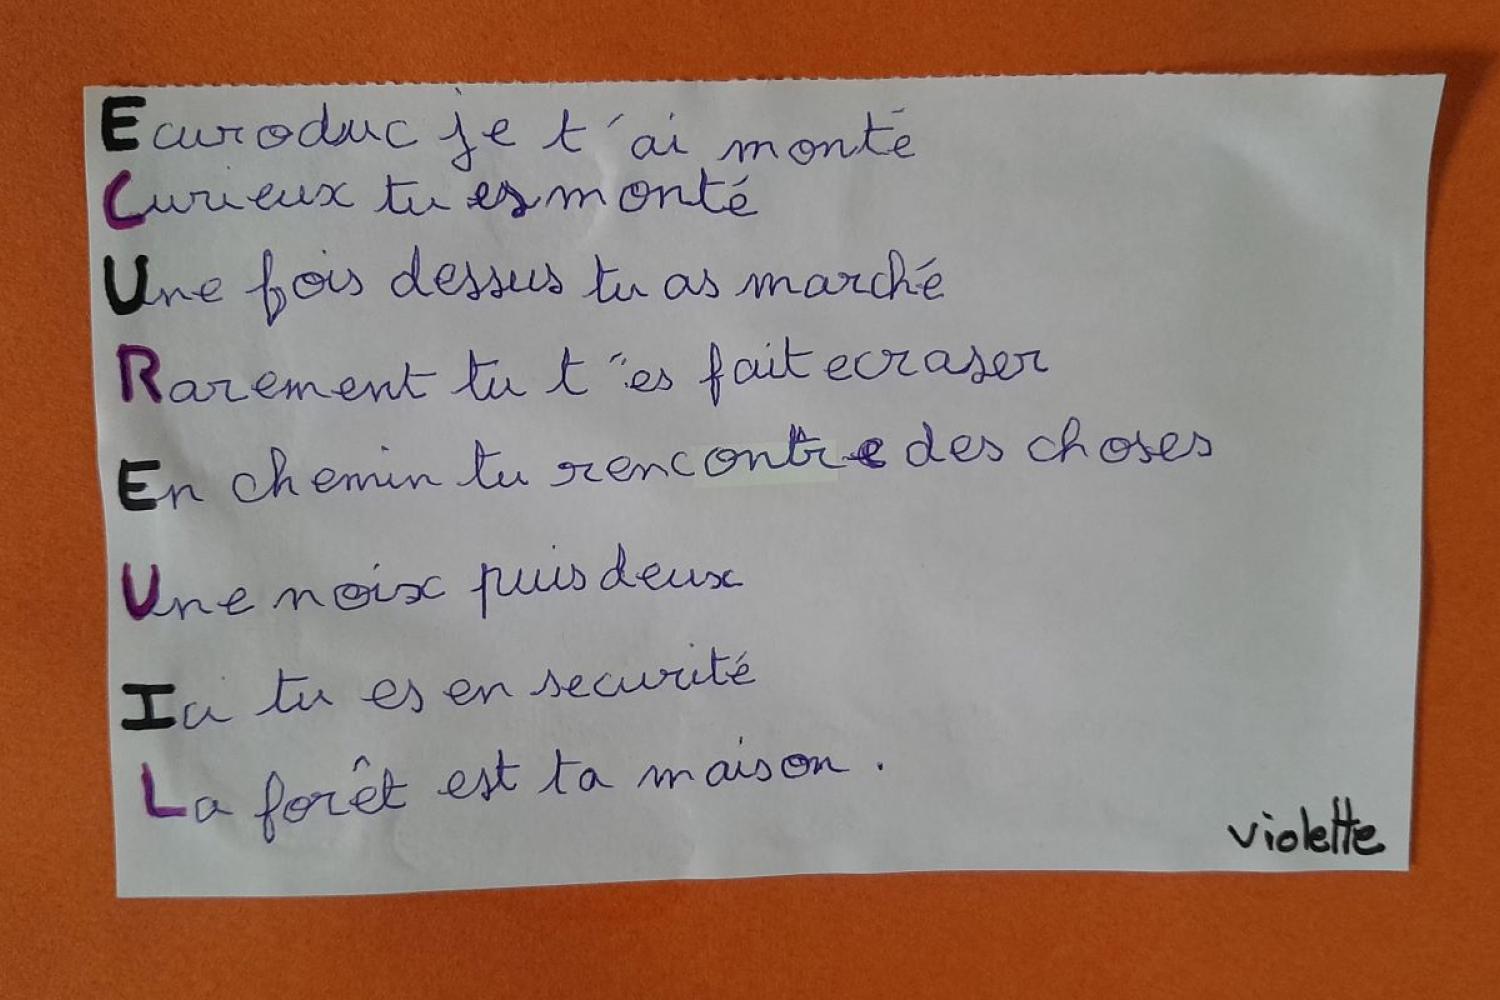 Ecuroduc je t'ai monté
Curieux tu es monté
Une fois dessus tu as marché
Rarement tu t'es fait ecraser
En chemin tu rencontre des choses
Une noix puis deux
Ici tu es en securité
La forêt est ta maison.
violette